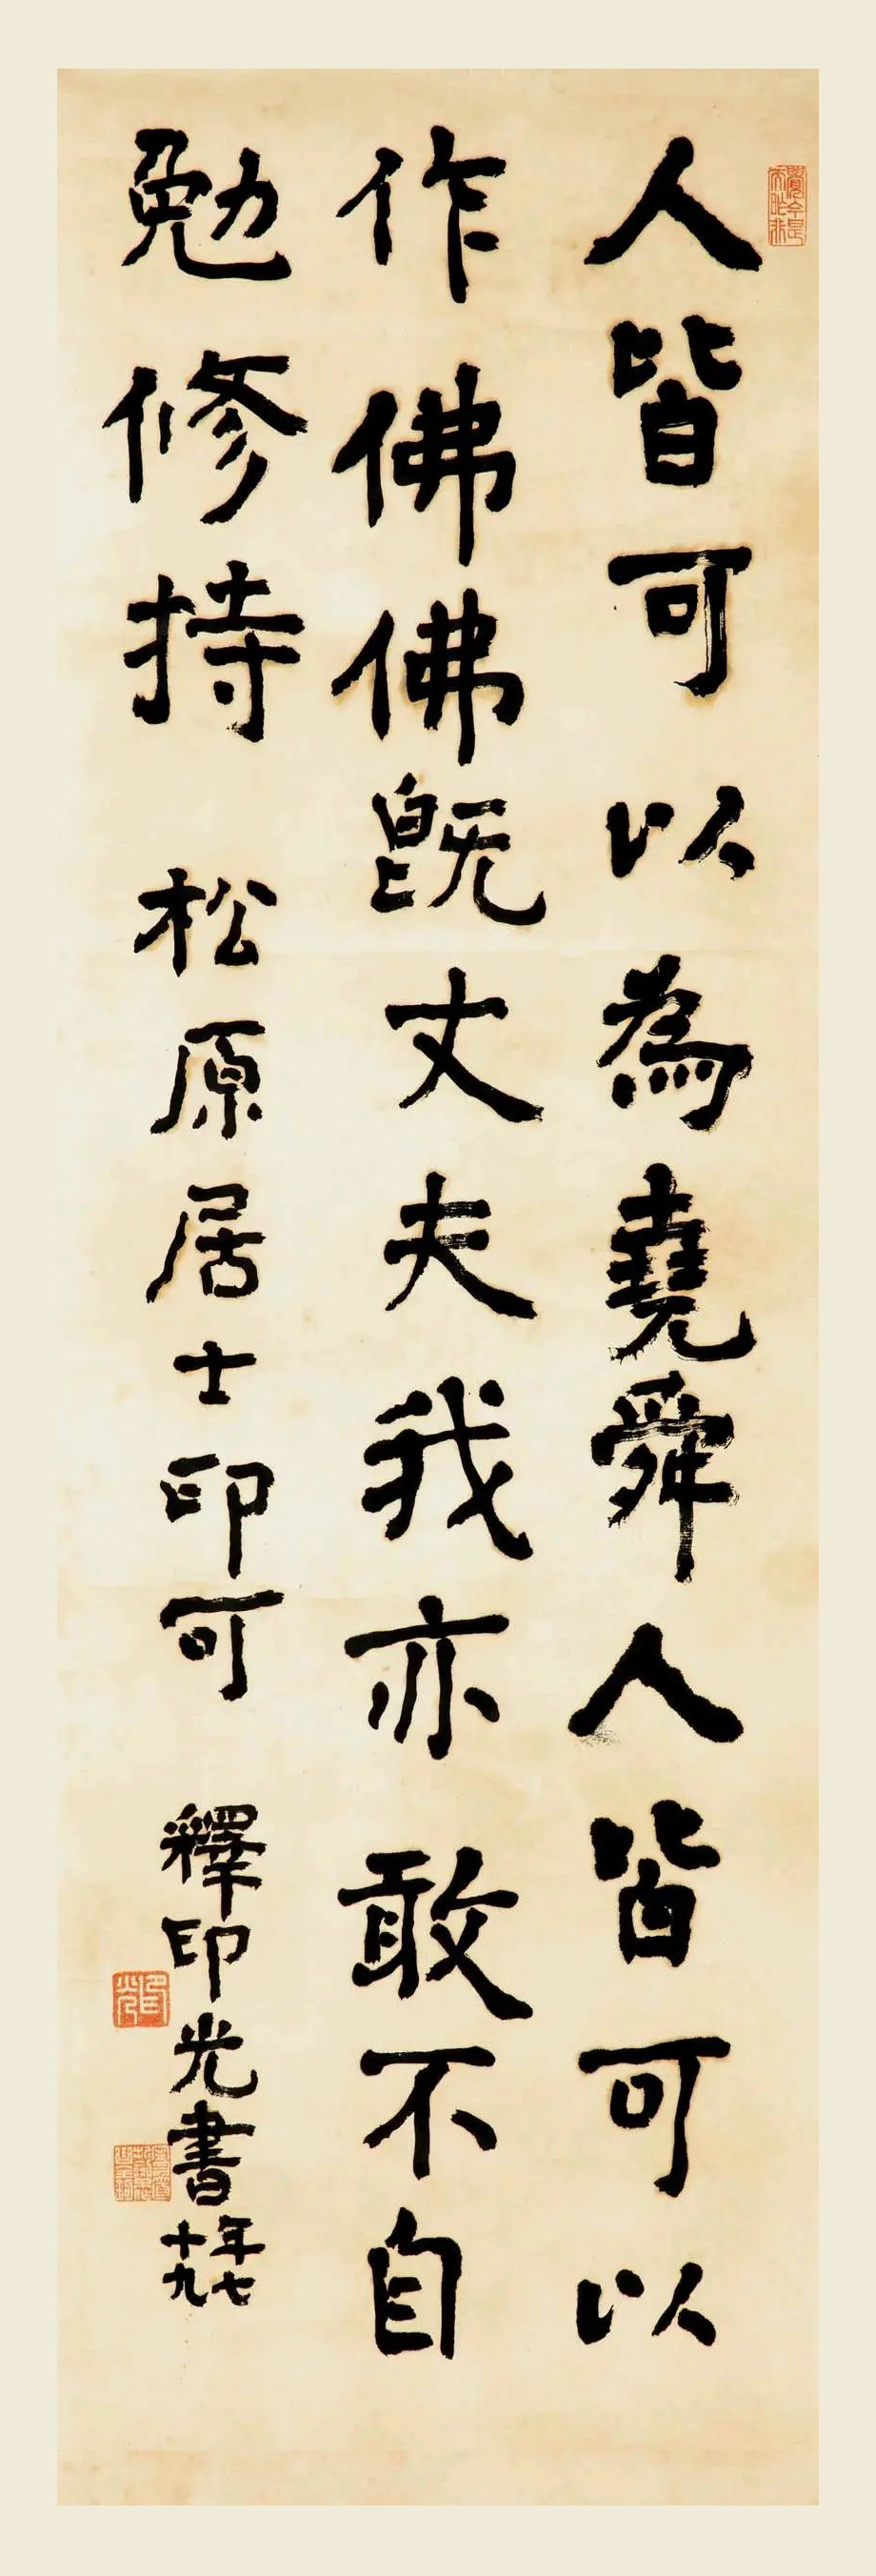 人皆可以為堯舜人皆可以
作佛佛既丈夫我亦敢不自
勉修持
松原居士印可
釋印光書
年七
十九